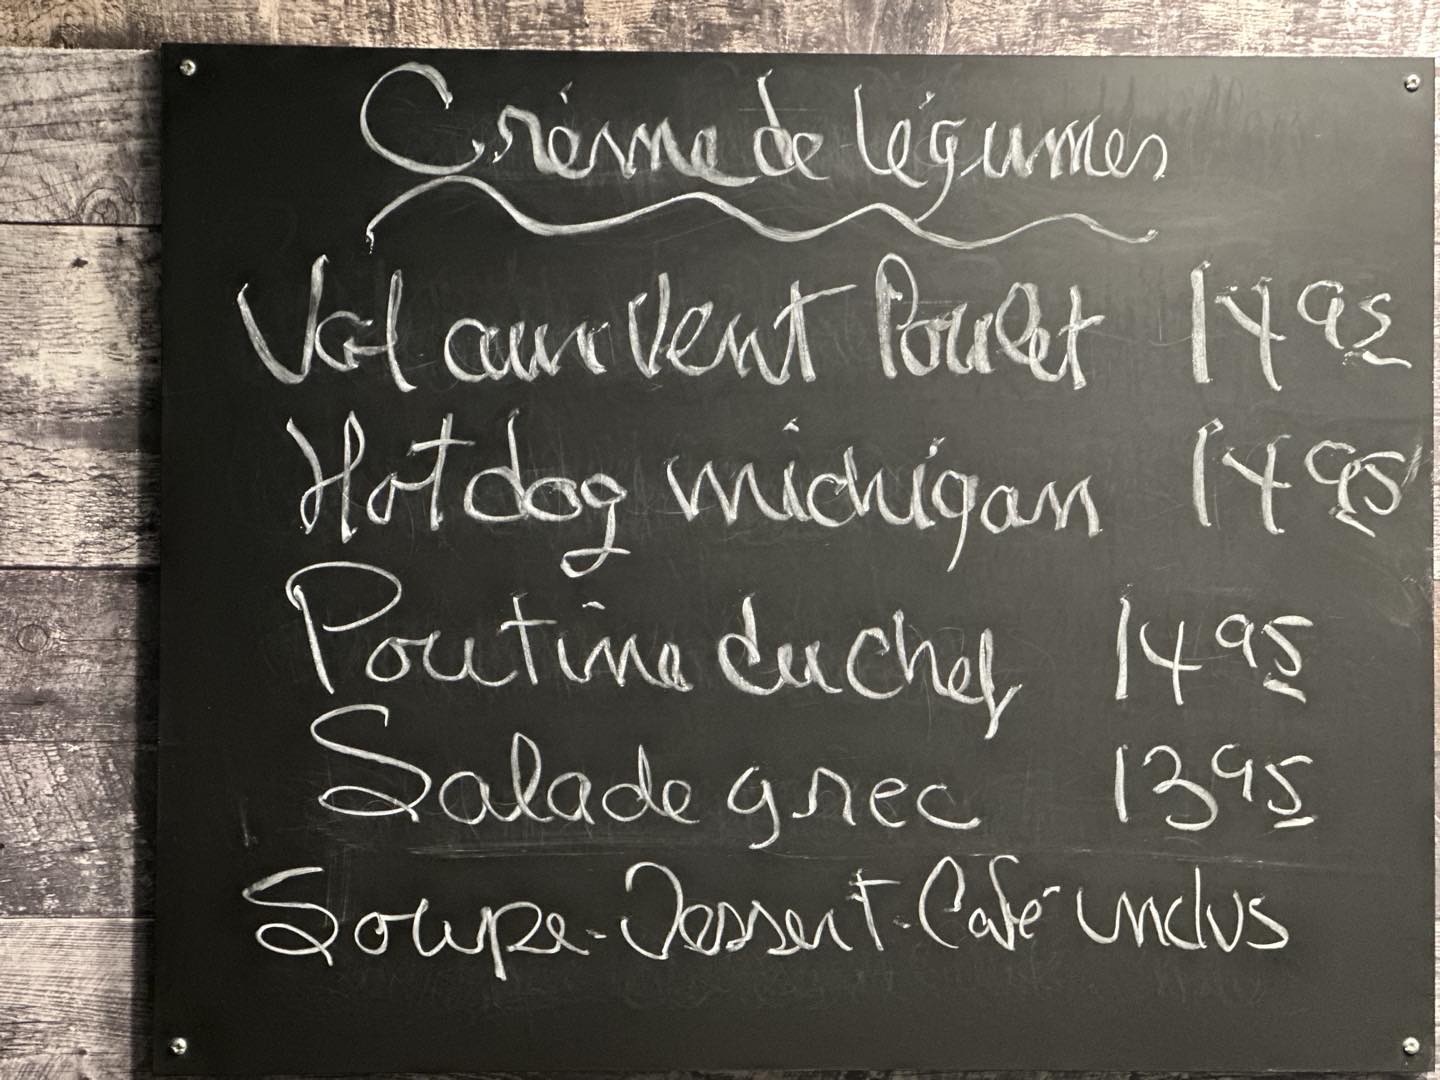 Crème de légumes
Vol au vent Poulet 14 95
Hot dog michigan 14 95
Poutine du chef 14 95
Salade grec 13 95
Soupe-Dessert-Café inclus